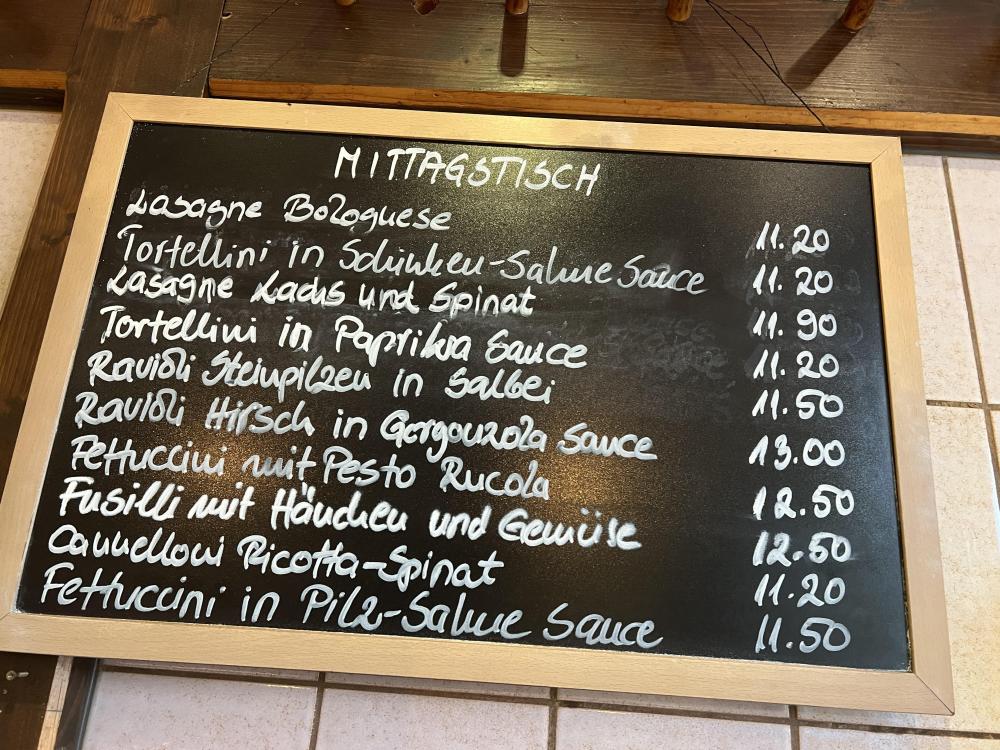 MITTAGSTISCH
Lasagne Bolognese 11.20
Tortellini in Schinken-Sahne Sauce 11.20
Lasagne Lachs und Spinat 11.90
Tortellini in Paprika Sauce 11.20
Ravioli Steinpilzen in Salbei 11.50
Ravioli Hirsch in Gorgonzola Sauce 13.00
Fettuccini mit Pesto Rucola 12.50
Fusilli mit Hänchen und Gemüise 12.50
Cannelloni Ricotta-Spinat 11.20
Fettuccini in Pilz-Sahne Sauce 11.50